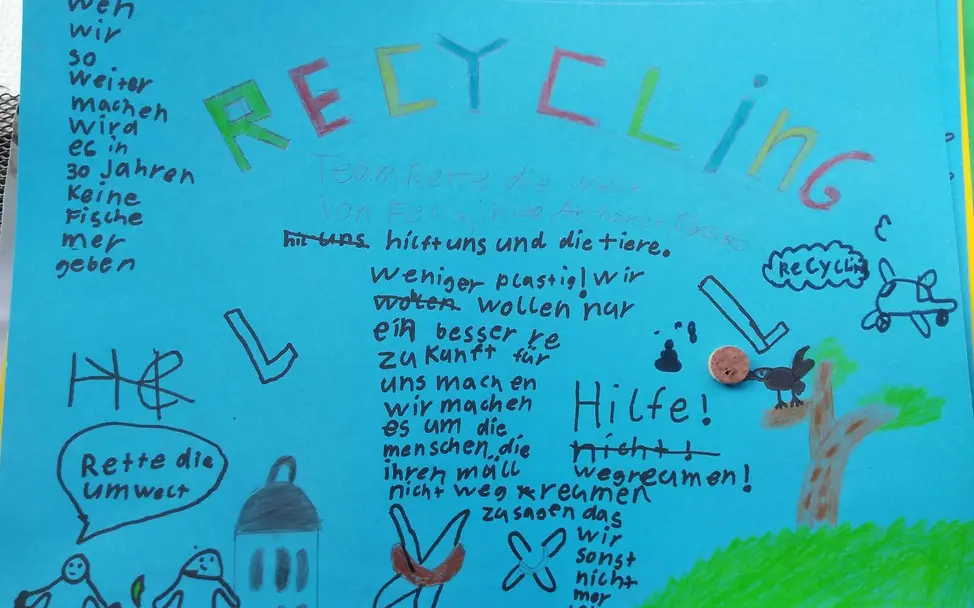 wen
wir
so
weiter
machen
wird
es in
30 Jahren
Keine
Fische
mer
geben
RECYCLinG
Team Rette die Welt
von
hil uns hilft uns und die tiere.
weniger plastig! wir
woten wollen nur
ein besser re
zukunft für
uns machen
wir machen
es um die
menschen die
ihren müll
nicht weg reumen
zusagen das
wir
sonst
nicht
mer
Hilfe!
nicht!
wegreumen!
ReCyclin
Rette die
umwelt